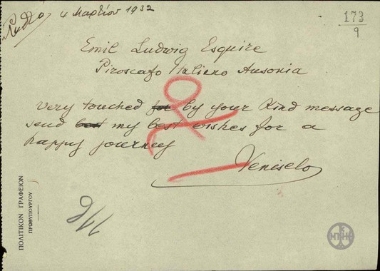 4 Μαρτίου 1932
173
9
Emil Ludwig Esquire
Piroscafo Italiano Ausonia
Very touched by your kind message
send my best wishes for a
happy journey
Veniselo
ΠΟΛΙΤΙΚΟΝ ΓΡΑΦΕΙΟΝ
ΠΡΩΘΥΠΟΥΡΓΟΥ